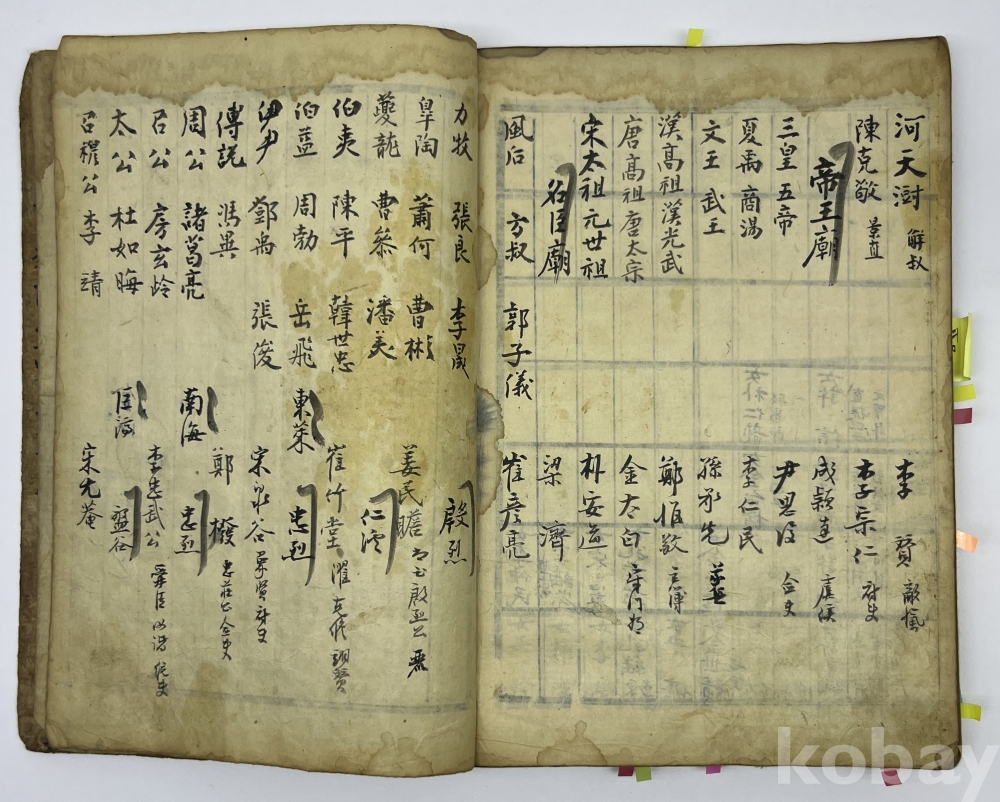 河天澍 解叔
李 贇 敵愾
陳克敬 景直
李宗仁 府史
帝王廟
成穎達 虞侯
三皇 五帝
尹思復 僉史
夏禹 商湯
李仁民
文王 武王
孫承先
漢高祖 漢光武
鄭惟敬
唐高祖 唐太宗
金太白 守門將
宋太祖 元世祖
朴安道
名臣廟
梁 濟
風后 方叔 郭子儀
崔彦亮
力牧 張良 李晟
殷烈
皐陶 蕭何 曹彬
姜民瞻
夔龍 曹參 潘美
仁
伯夷 陳平 韓世忠
崔竹堂 濯
伯益 周勃 岳飛
東萊
忠烈
伊尹 鄧禹 張俊
宋泉谷 象賢 府史
傅說 馮異
鄭 撥 忠莊公 僉史
周公 諸葛亮
南海
忠烈
召公 房玄岭
李忠武公 舜臣
太公 杜如晦
盤谷
召穆公 李 靖
宋尤菴
kobay